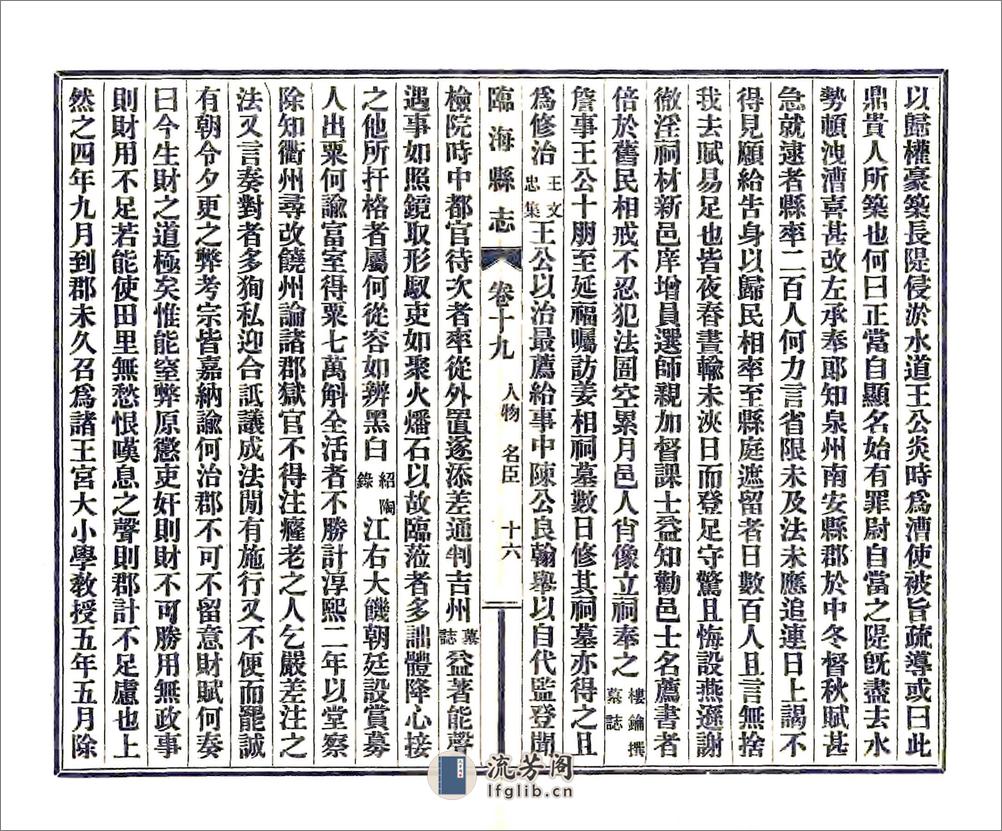 以歸權豪築長隄侵淤水道王公炎時爲漕使被旨疏導或曰此
鼎貴人所築也何曰正當自顯名始有罪尉自當之隄旣盡去水
勢頓洩漕喜甚改左承奉郎知泉州南安縣郡於中冬督秋賦甚
急就逮者縣率二百人何力言省限未及法未應追連日上謁不
得見願給告身以歸民相率至縣庭遮留者日數百人且言無捨
我去賦易足也皆夜舂晝輸未浹日而登足守驚且悔設燕遜謝
徹淫祠材新邑庠增員選師親加督課士益知勸邑士名薦書者
倍於舊民相戒不忍犯法圄空累月邑人肖像立祠奉之樓鑰撰墓誌
詹事王公十朋至延福囑訪姜相祠墓數日修其祠墓亦得之且
爲修治王文忠集王公以治最薦給事中陳公良翰舉以自代監登聞
臨海縣志 卷十九 人物 名臣 十六
檢院時中都官待次者率從外置遂添差通判吉州墓誌益著能聲
遇事如照鏡取形馭吏如聚火燔石以故臨蒞者多詘體降心接
之他所扞格者屬何從容如辨黑白紹陶錄江右大饑朝廷設賞募
人出粟何諭富室得粟七萬斛全活者不勝計淳熙二年以堂察
除知衢州尋改饒州論諸郡獄官不得注癃老之人乞嚴差注之
法又言奏對者多狥私迎合詆議成法閒有施行又不便而罷誠
有朝令夕更之弊孝宗皆嘉納諭何治郡不可不留意財賦何奏
曰今生財之道極矣惟能窒弊原懲吏奸則財不可勝用無政事
則財用不足若能使田里無愁恨嘆息之聲則郡計不足慮也上
然之四年九月到郡未久召爲諸王宮大小學敎授五年五月除
流芳阁
lfglib.cn